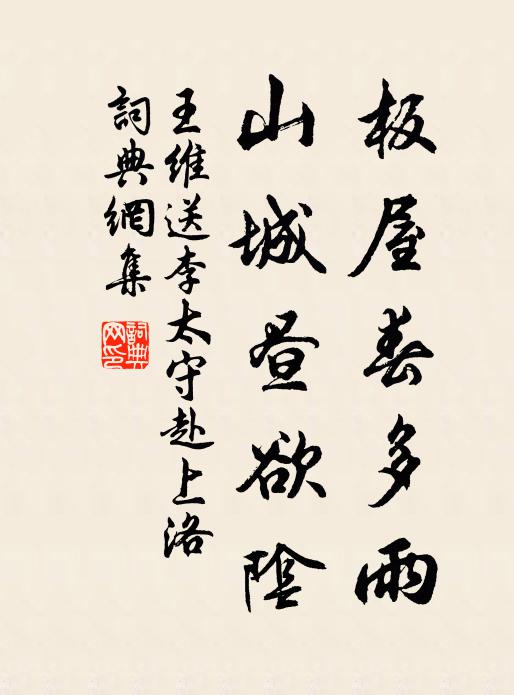 板屋春多雨
山城昼欲陰
王維送李太守赴上洛
詞典網集
詞典網印